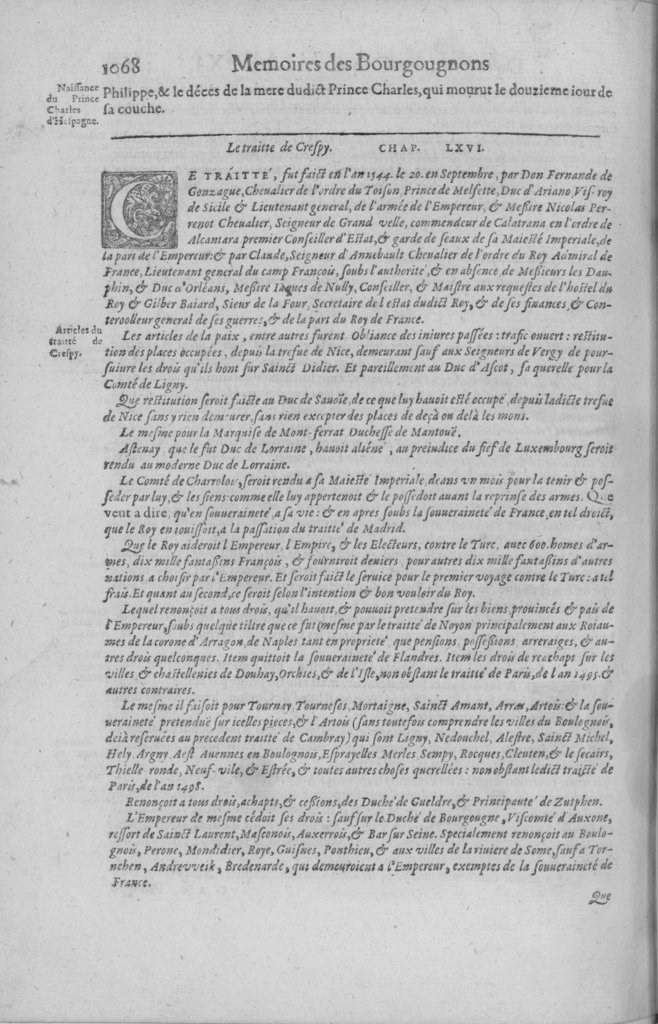 1068 Memoires des Bourgougnons
Naissance
du Prince
Charles
d'Hespagne.
Philippe, & le déces de la mere dudict Prince Charles, qui mourut le douzieme iour de
sa couche.
Le traitté de Crespy. CHAP. LXVI.
CE TRAITTÉ, fut faict en l'an 1544. le 20. en Septembre, par Don Fernande de
Gonzague, Chevalier de l'ordre du Toison, Prince de Melfette, Duc d'Ariano, Vis-roy
de Sicile & Lieutenant general, de l'armée de l'Empereur, & Meßire Nicolas Per-
renot Chevalier, Seigneur de Grand velle, commendeur de Calatrana en l'ordre de
Alcantara premier Conseiller d'Estat, & garde de seaux de sa Maiesté Imperiale, de
la part de l'Empereur: & par Claude, Seigneur d'Annebault Chevalier de l'ordre du Roy Admiral de
France, Lieutenant general du camp François, soubs l'authorité, & en absence de Meßieurs les Dau-
phin, & Duc d'Orléans, Meßire Iaques de Nully, Conseiller, & Maistre aux requestes de l'hostel du
Roy & Gilber Baiard, Sieur de la Four, Secretaire de l'estat dudict Roy, & de ses finances, & Con-
teroolleur general de ses guerres, & de la part du Roy de France.
Articles du
traitté de
Crespy.
Les articles de la paix, entre autres furent Obliance des iniures passées: trafic ouvert: restitu-
tion des places occupées, depuis la trefue de Nice, demeurant sauf aux Seigneurs de Vergy de pour-
suiure les drois qu'ils hont sur Sainct Didier. Et pareillement au Duc d'Ascot, sa querelle pour la
Comté de Ligny.
Que restitution seroit faicte au Duc de Savoïe, de ce que luy hauoit esté occupé, depuis ladicte trefue
de Nice sans y rien demeurer, sans rien excepter des places de deçà ou delà les mons.
Le mesme pour la Marquise de Mont-ferrat Duchesse de Mantouë.
Astenay que le fut Duc de Lorraine, hauoit aliené, au preiudice du fief de Luxembourg seroit
rendu au moderne Duc de Lorraine.
Le Comté de Charrolois, seroit rendu a sa Maiesté Imperiale, deans vn mois pour la tenir & pos-
séder par luy, & les siens comme elle luy appertenoit & le possedoit auant la reprinse des armes. Que
veut a dire, qu'en souueraineté, a sa vie: & en apres soubs la souueraineté de France, en tel droict,
que le Roy en iouissoit, a la passation du traitté de Madrid.
Que le Roy aideroit l'Empereur, l'Empire, & les Electeurs, contre le Turc, auec 600. homes d'ar-
mes, dix mille fantaßins François, & fourniroit deniers, pour autres dix mille fantaßins d'autres
nations a choisir par l'Empereur. Et seroit faict le seruice pour le premier voyage contre le Turc: a tel
frais. Et quant au second, ce seroit selon l'intention & bon vouloir du Roy.
Lequel renonçoit a tous drois, qu'il hauoit, & pouuoit pretendre sur les biens, prouincés & païs de
l'Empereur, soubs quelque tiltre que ce fut (mesme par le traitté de Noyon principalement aux Roiau-
mes de la corone d'Arragon, de Naples tant en proprieté que pensions, possessions, arreraiges, & au-
tres drois quelconques. Item quittoit la souueraineté de Flandres. Item les drois de reachapt sur les
villes & chastellenies de Douhay, Orchies, & de l'Isle, non obstant le traitté de Paris, de l'an 1495. &
autres contraires.
Le mesme il faisoit pour Tournay, Tourneses, Mortaigne, Sainct Amant, Arras, Artois: & la sou-
ueraineté pretenduë sur icelles pieces, & l'Artois (sans toutefois comprendre les villes du Boulognois,
deià reseruées au precedent traitté de Cambray) qui sont Ligny, Nedouchel, Alestre, Sainct Michel,
Hely, Argny, Aest, Auennes en Boulognois, Esprayelles Merles, Sempy, Rocques, Cleuten, & le secairs,
Thielle ronde, Neuf-vile, & Estrée, & toutes autres choses querellées: non obstant ledict traicté de
Paris, de l'an 1498.
Renonçoit a tous drois, achapts, & ceßions, des Duché de Gueldre, & Principauté de Zutphen.
L'Empereur de mesme cédoit ses drois: sauf sur le Duché de Bourgougne, Viscomté d'Auxone,
ressort de Sainct Laurent, Masconois, Auxerrois, & Bar sur Seine. Specialement renonçoit au Boulo-
gnois, Perone, Mondidier, Roye, Guisnes, Ponthieu, & aux villes de la riuiere de Some, sauf a Tor-
nehen, Andrevveik, Bredenarde, qui demeuroient a l'Empereur, exemptes de la souueraineté de
France.
Que